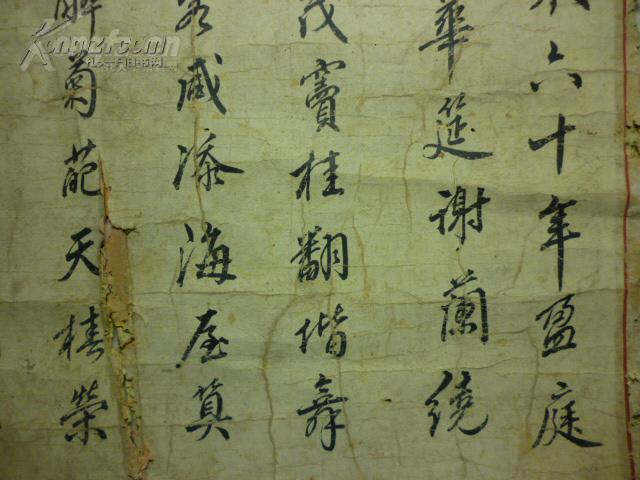 六十年盈庭
華筵謝蘭繞
茂竇桂翻階舞
咸添海屋算
菊葩天椿榮
Kongfz.com
孔夫子旧书网